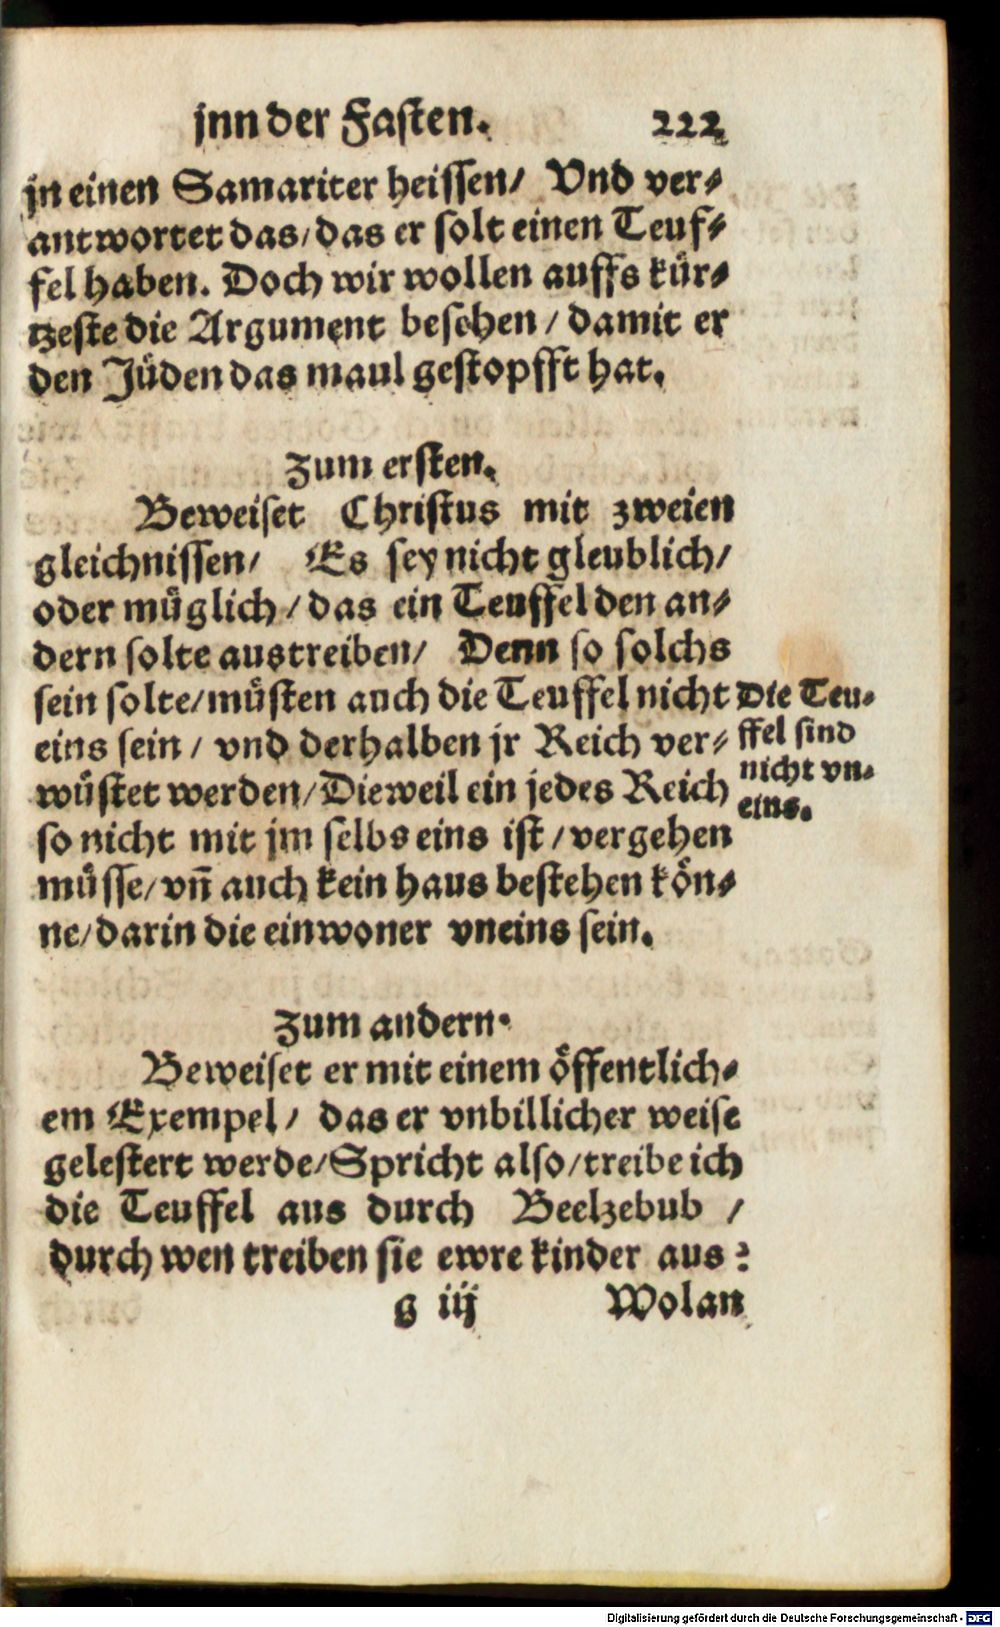 jnn der Fasten. 222
jn einen Samariter heissen/ Vnd ver⸗
antwortet das/das er solt einen Teuf⸗
fel haben. Doch wir wollen auffs kür⸗
tzeste die Argument besehen/ damit er
den Jüden das maul gestopfft hat.
Zum ersten.
Beweiset Christus mit zweien
gleichnissen/ Es sey nicht gleublich/
oder müglich/das ein Teuffel den an⸗
dern solte austreiben/ Denn so solchs
sein solte/müsten auch die Teuffel nicht
eins sein/ vnd derhalben jr Reich ver⸗
wüstet werden/Dieweil ein jedes Reich
so nicht mit jm selbs eins ist/vergehen
müsse/vñ auch kein haus bestehen kön⸗
ne/darin die einwoner vneins sein.
Die Teu⸗
ffel sind
nicht vn⸗
eins.
Zum andern.
Beweiset er mit einem öffentlich⸗
em Exempel/ das er vnbillicher weise
gelestert werde/Spricht also/treibe ich
die Teuffel aus durch Beelzebub /
durch wen treiben sie ewre kinder aus?
g iij Wolan
Digitalisierung gefördert durch die Deutsche Forschungsgemeinschaft - DFG